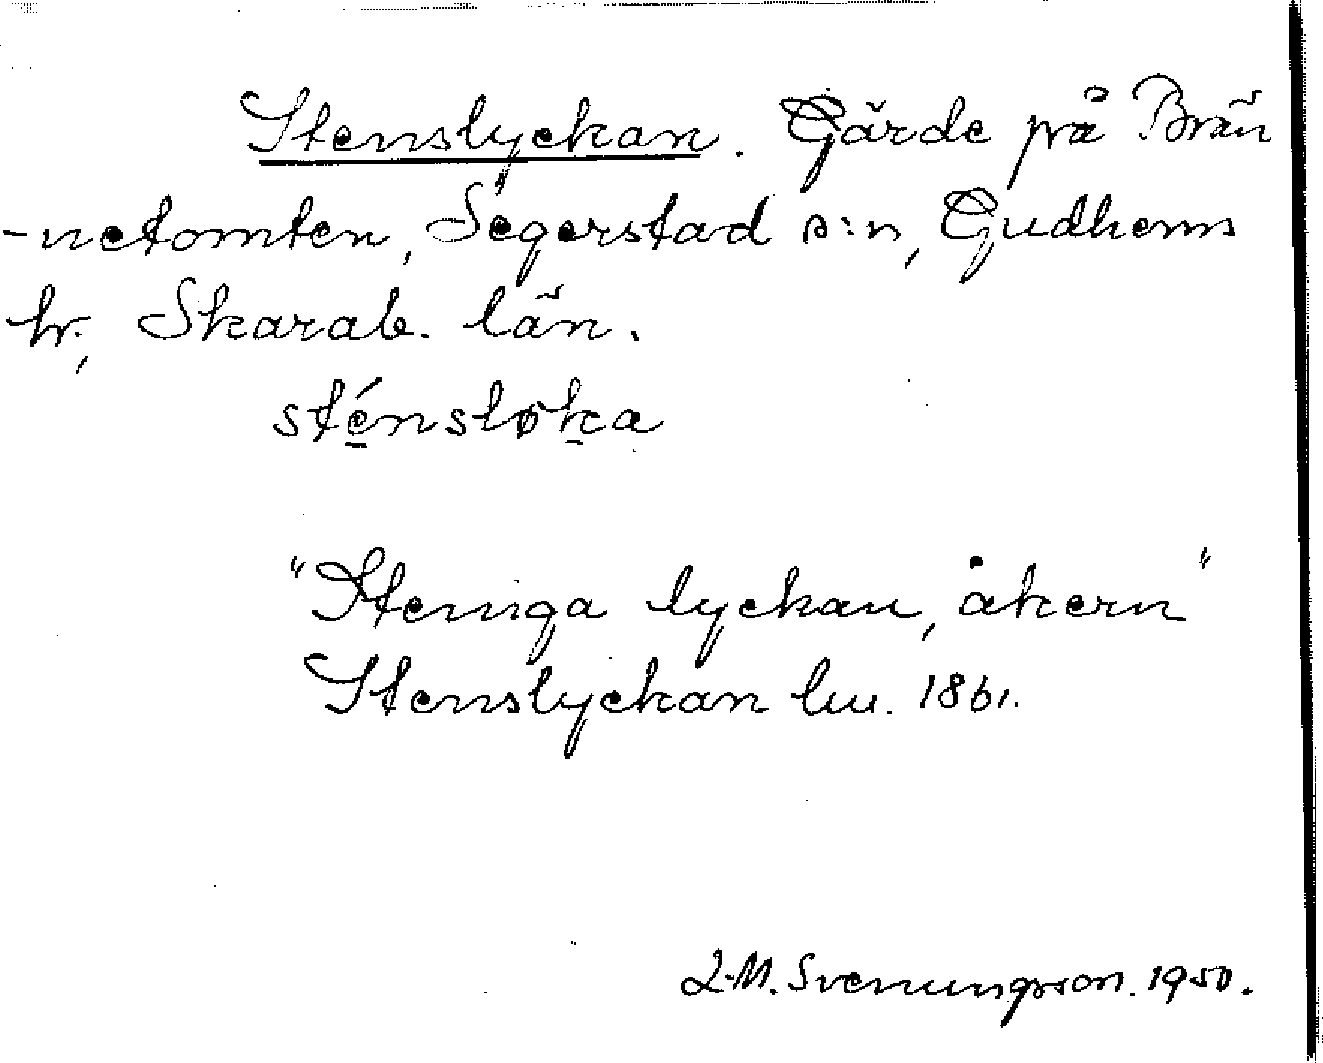 Stenslyckan. Gärde på Brän
-netomten, Segerstad s:n, Gudhems
hr., Skarab. län.
sténsløka
"Steniga lyckan, åkern"
Stenslyckan lu. 1861.
L-M. Svenungsson. 1950.